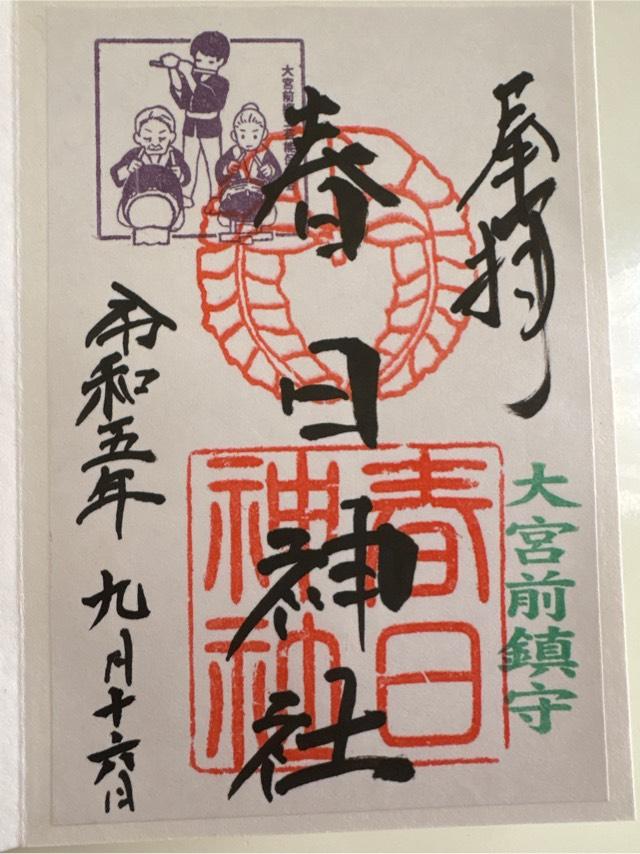 奉拝
大宮前鎮守
春日神社
春日
神社
大宮前
令和五年 九月十六日